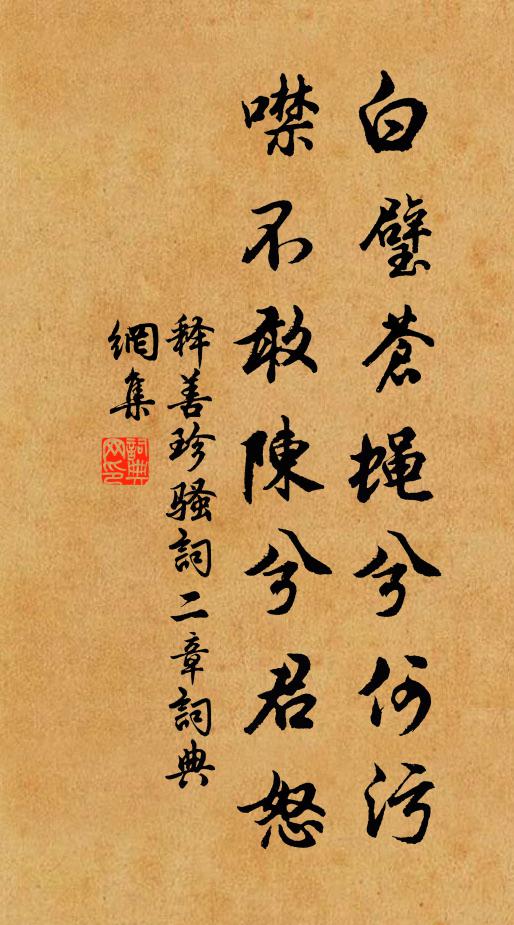 白璧苍蝇兮何污
噤不敢陳兮君怒
释善珍骚詞二章詞典
網集
詞典
网印